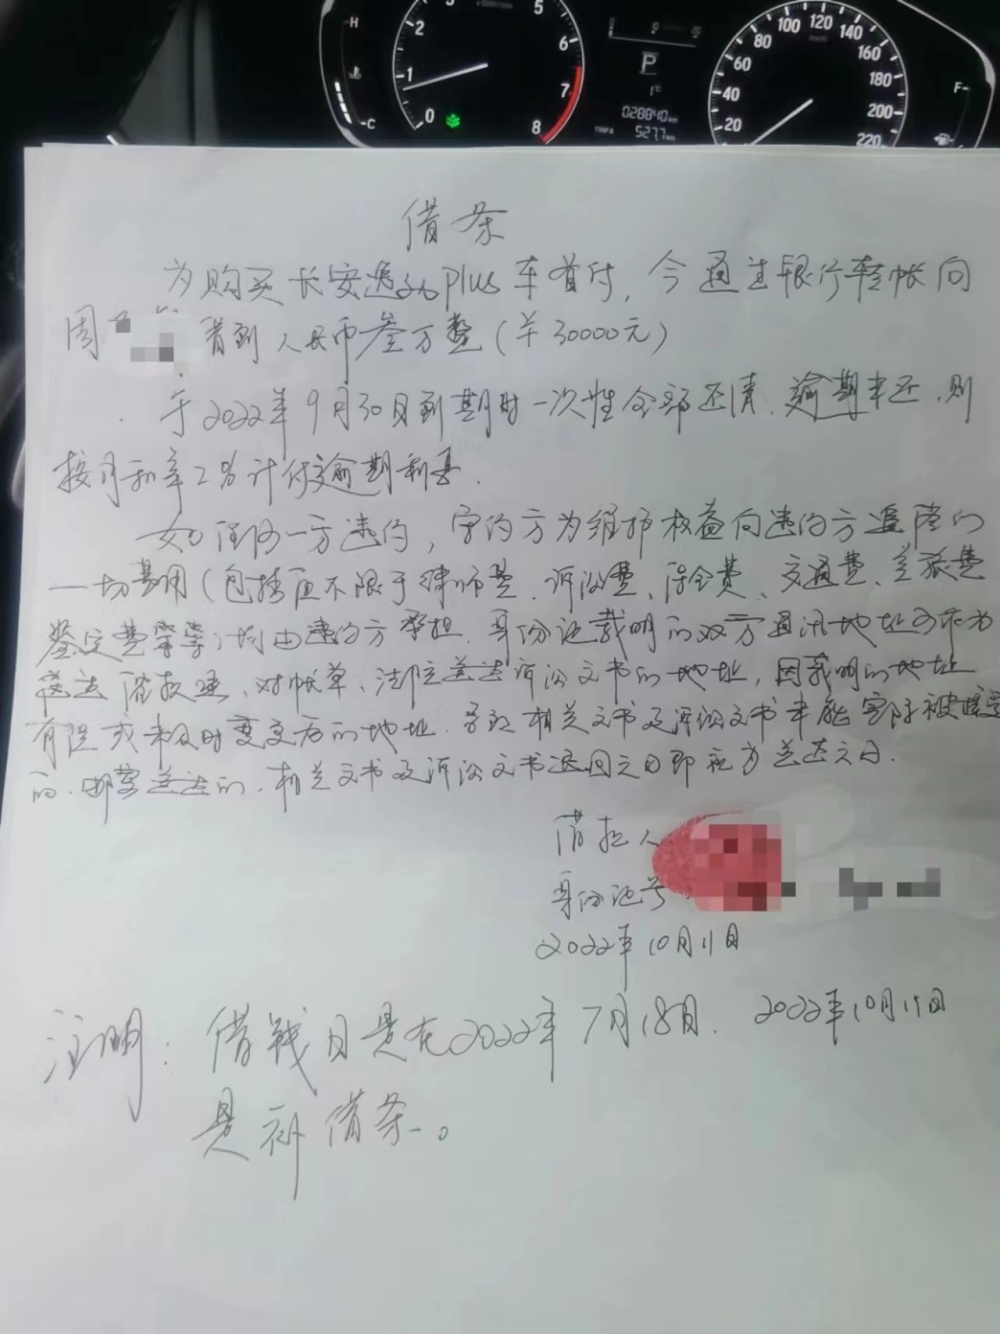 H
C
0
1
2
3
5
6
7
8
P
1℃
028840km
TRIP A 527.7km
20
40
60
80
100
120
140
160
180
200
220
km/h
F
借条
为购买长安逸动plus车首付，今通过银行转帐向
周 借到人民币叁万整（￥30000元）
于2022年9月30日到期时一次性全部还清.逾期未还.则
按月利率2%计付逾期利息.
如任何一方违约，守约方为维护权益向违约方追偿的
一切费用（包括但不限于律师费.诉讼费、保全费、交通费、差旅费
鉴定费等等）均由违约方承担.身份证载明的双方通讯地址可作为
送达催款函、对帐单、法院送达诉讼文书的地址，因载明的地址
有误或未及时变更后的地址.导致相关文书及诉讼文书未能实际被接受
的.邮寄送达的.相关文书及诉讼文书退回之日即视为送达之日.
借款人
身份证号
2022年10月11日
注明：借钱日是在2022年7月18日. 2022年10月11日
是补借条。